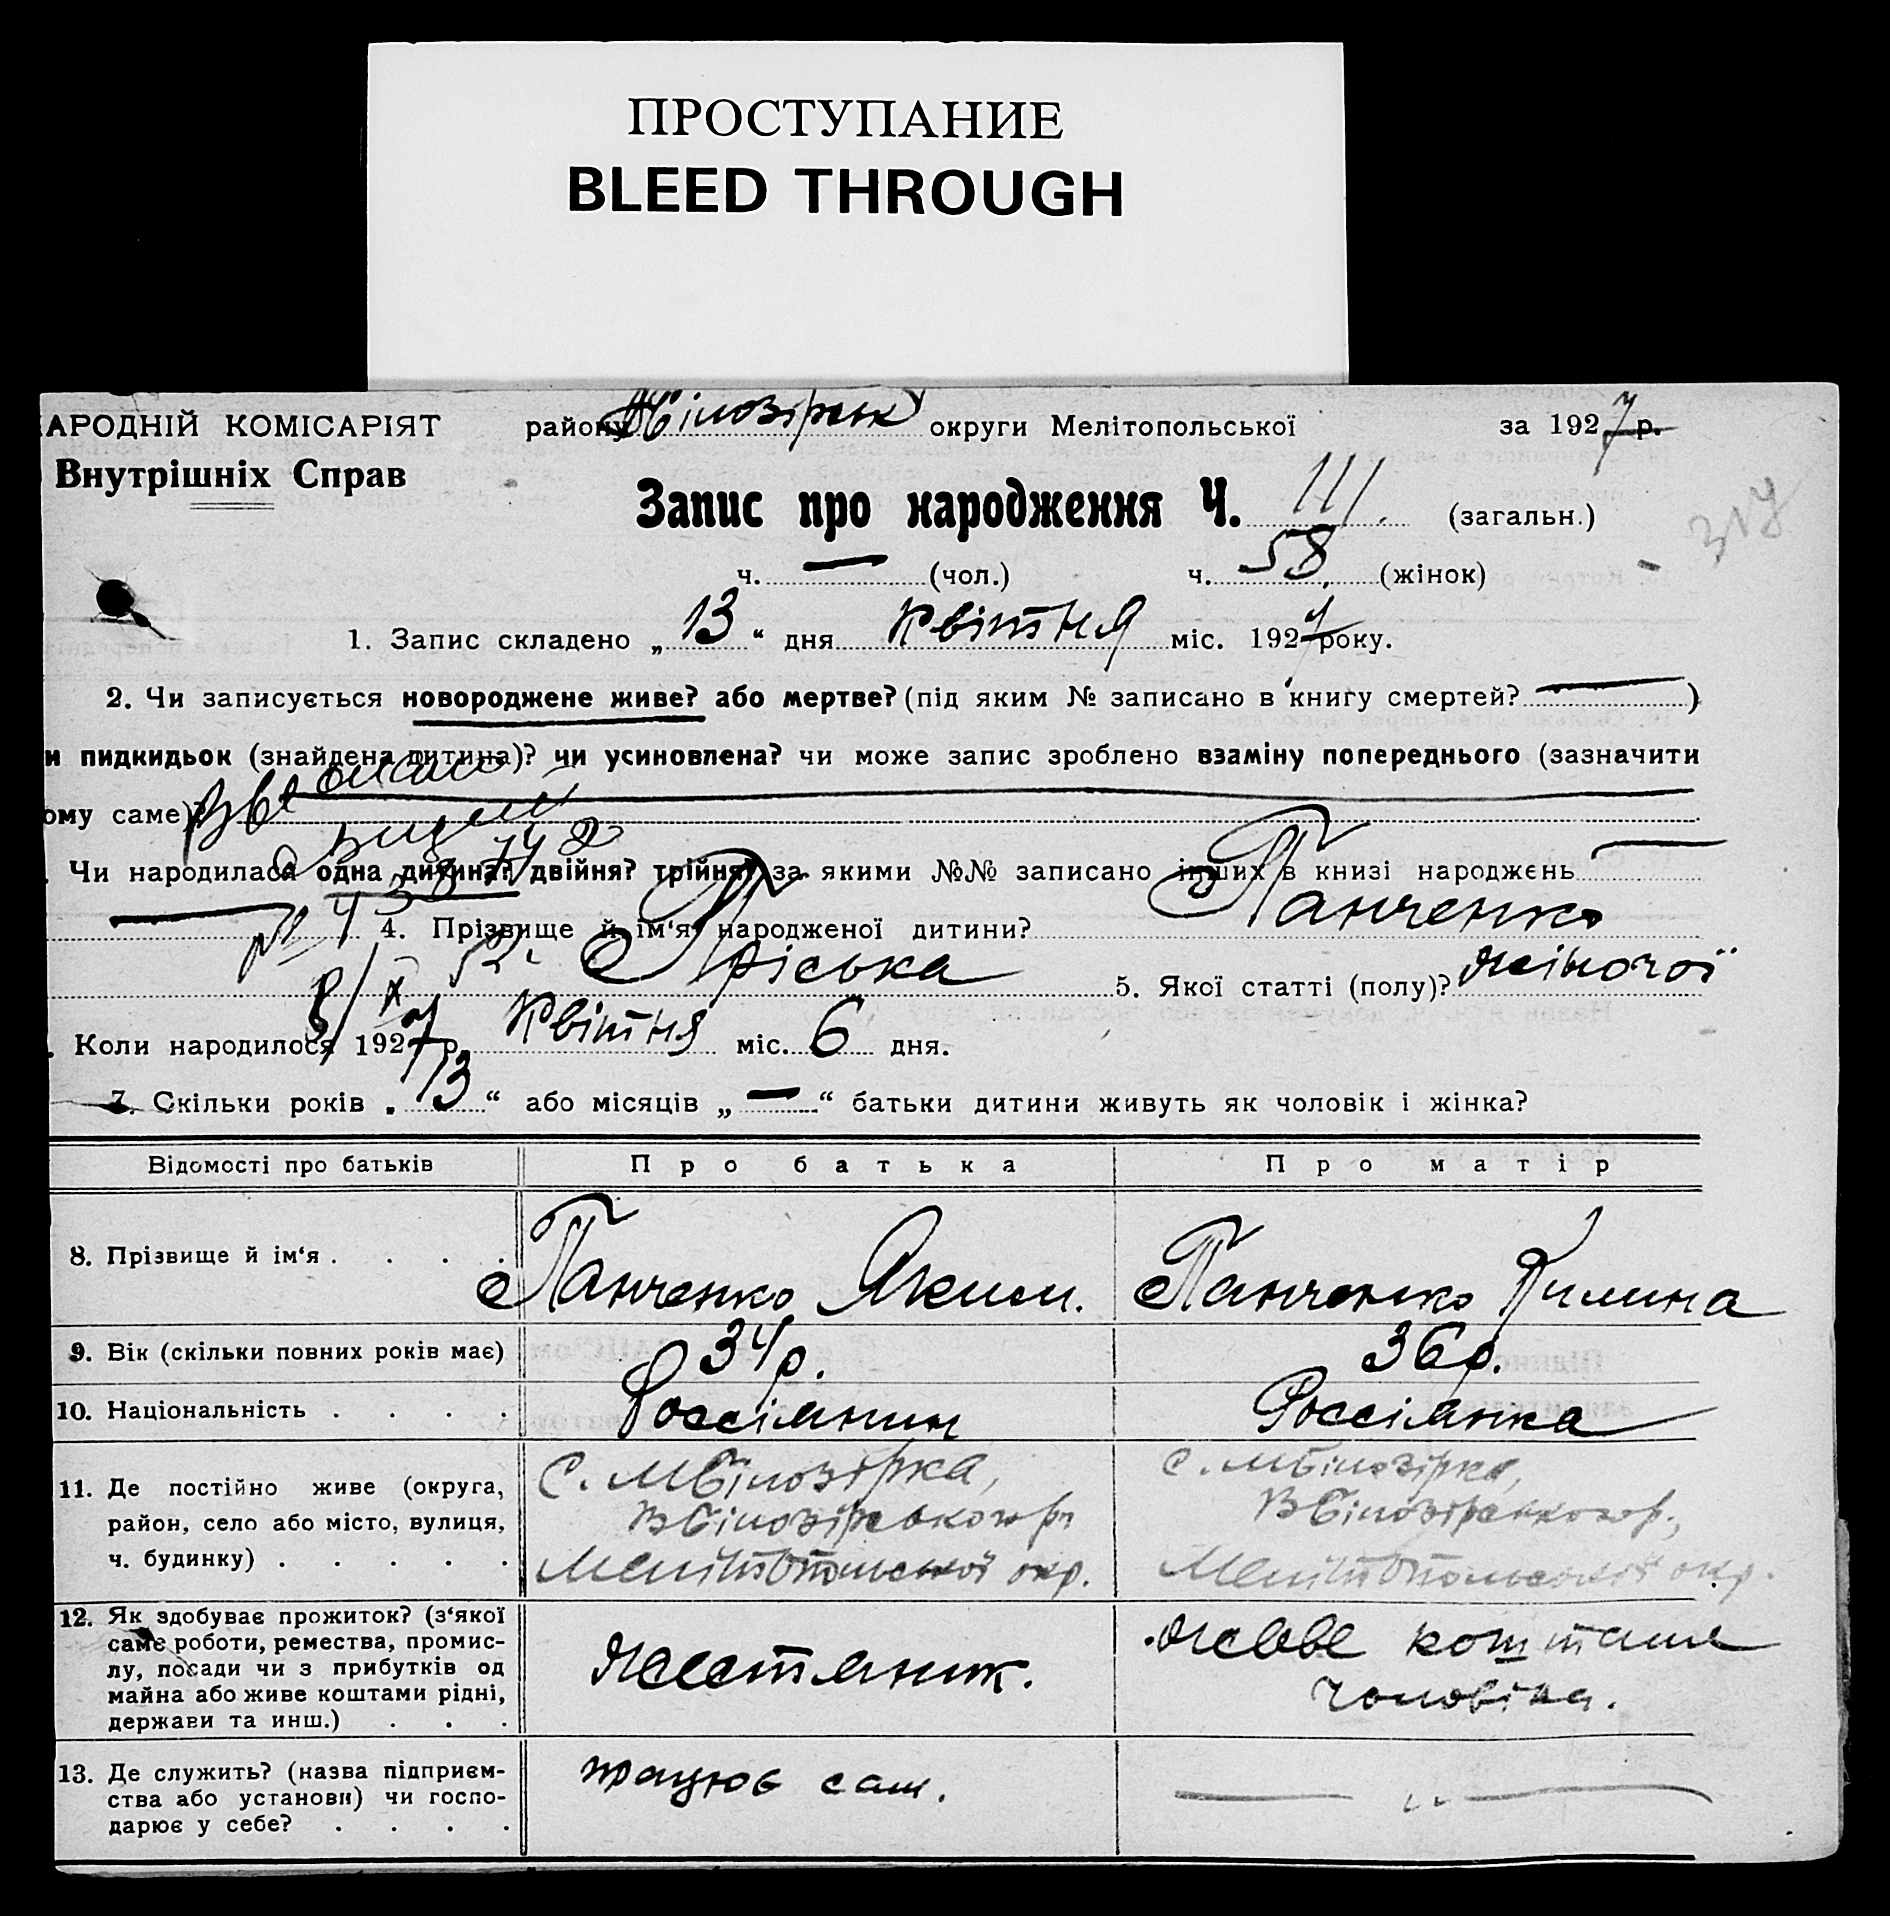 ПРОСТУПАНИЕ
BLEED THROUGH
АРОДНІЙ КОМІСАРІЯТ
Внутрішніх Справ
району округи Мелітопольської за 1927 р.
Запис про народження Ч. 111. (загальн.)
ч. — (чол.) ч. 58. (жінок)
1. Запис складено „13“ дня Квітня міс. 1927 року.
2. Чи записується новороджене живе? або мертве? (під яким № записано в книгу смертей? —)
и пидкидьок (знайдена дитина)? чи усиновлена? чи може запис зроблено взаміну попереднього (зазначити
ому саме)
. Чи народилася одна дитина? двійня? трійня? за якими №№ записано інших в книзі народжень —
— 4. Прізвище й ім‘я народженої дитини? Панченко
Пріська 5. Якої статті (полу)? жіночої
. Коли народилося 1927 р. Квітня міс. 6 дня.
7. Скільки років „13“ або місяців „—“ батьки дитини живуть як чоловік і жінка?
Відомості про батьків Про батька Про матір
8. Прізвище й ім‘я . . . . Панченко Яким. Панченко Килина
9. Вік (скільки повних років має) 34 р. 36 р.
10. Національність . . . . Россіянин Россіянка
11. Де постійно живе (округа,
район, село або місто, вулиця,
ч. будинку) . . . . .
С. МБілозірка,
ВБілозірського р.
Мелітопольської окр.
с. МБілозірка,
ВБілозірського р.,
Мелітопольської окр.
12. Як здобуває прожиток? (з‘якої
саме роботи, ремества, промис-
лу, посади чи з прибутків од
майна або живе коштами рідні,
держави та инш.) . . .
жестяник.
живе коштами
чоловіка.
13. Де служить? (назва підприєм-
ства або установи) чи госпо-
дарює у себе? . . . .
працює сам.
— „ —